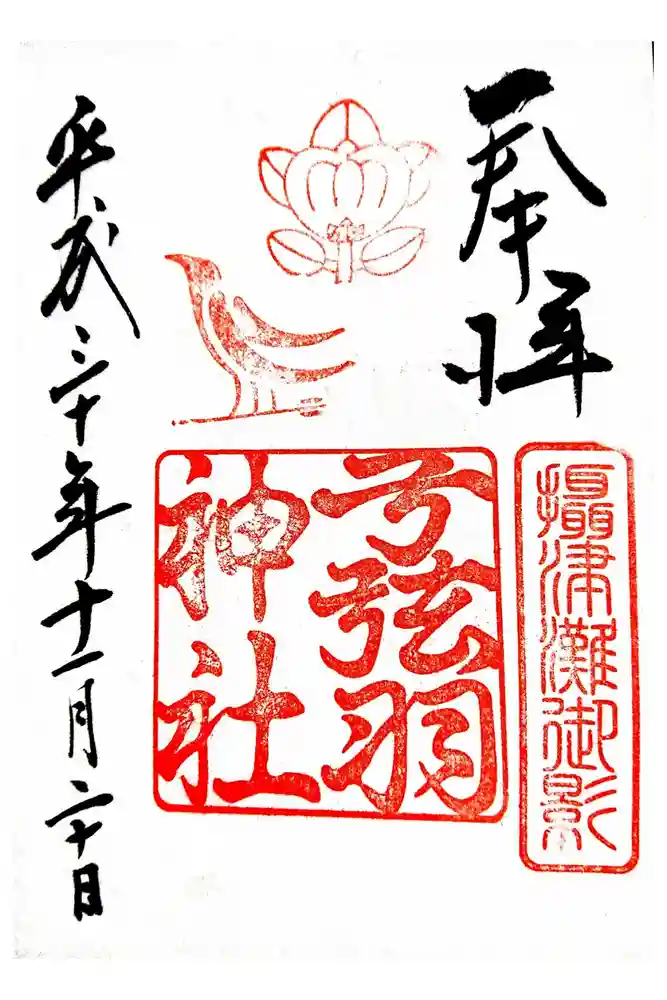 奉拝
攝津灘御影
弓弦羽
神社
平成三十年十一月二十日